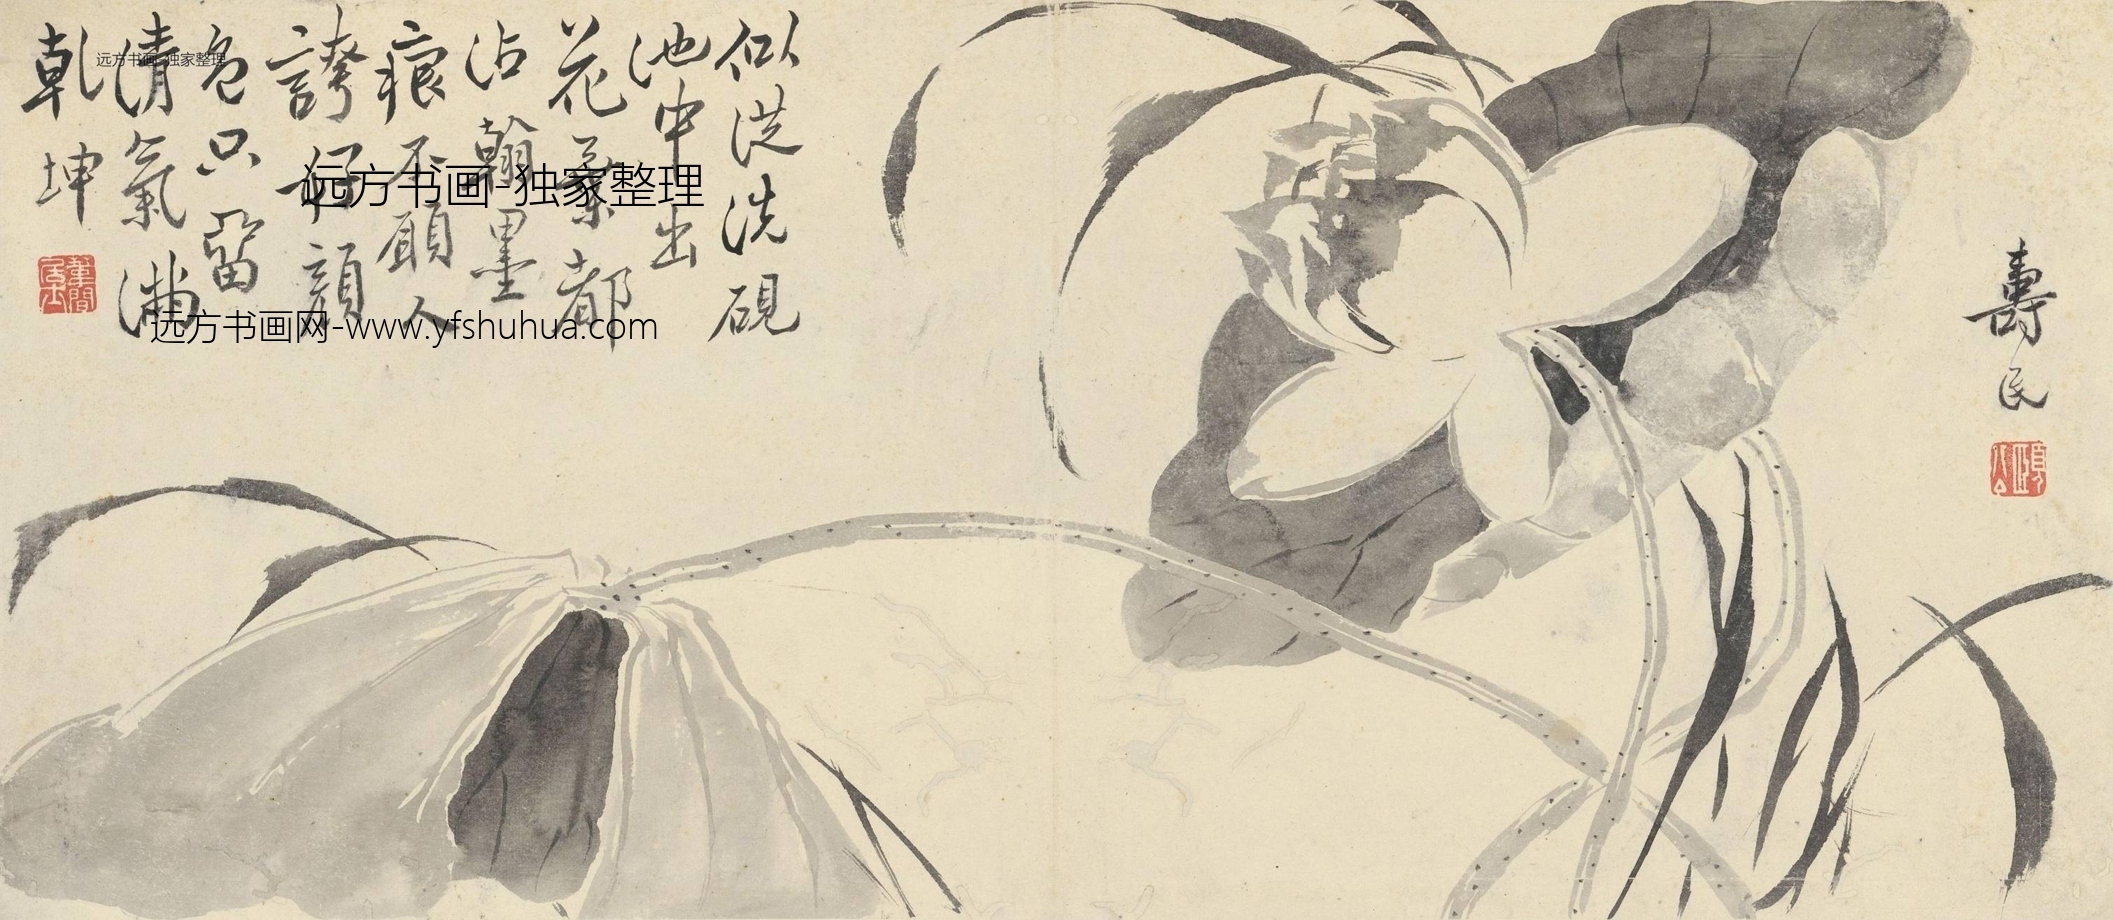 壽民
頤公
似從洗硯
池中出
花葉都
沾翰墨
痕不顧人
誇好顏
色只留
清氣滿
乾坤
葦間居士
远方书画-独家整理
远方书画-独家整理
远方书画网-www.yfshuhua.com